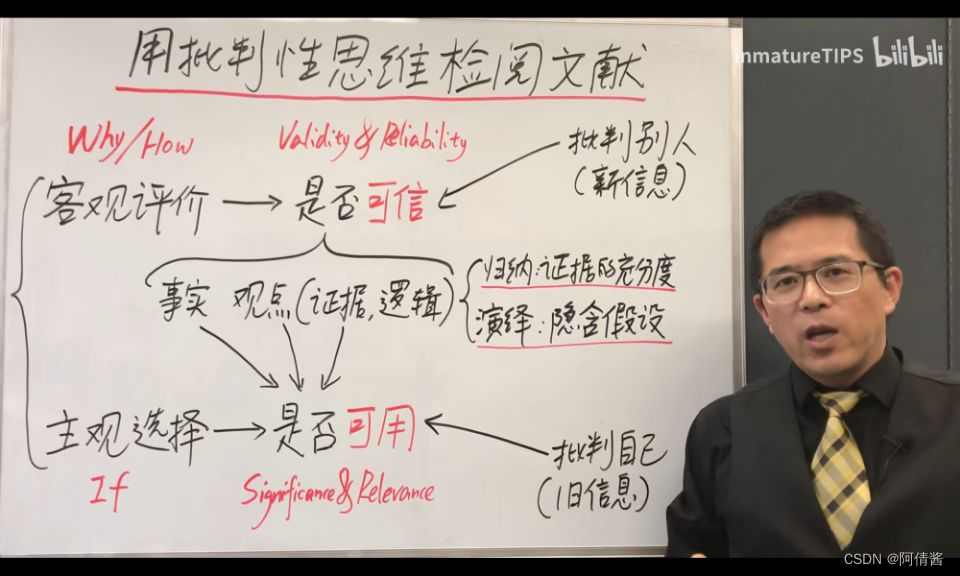 用批判性思维检阅文献
mmatureTIPS bilibili
Why/How
Validity & Reliability
批判别人
(新信息)
客观评价 → 是否可信
事实 观点(证据,逻辑)
归纳:证据的充分度
演绎:隐含假设
主观选择 → 是否可用
批判自己
(旧信息)
If
Significance & Relevance
CSDN @阿倩酱